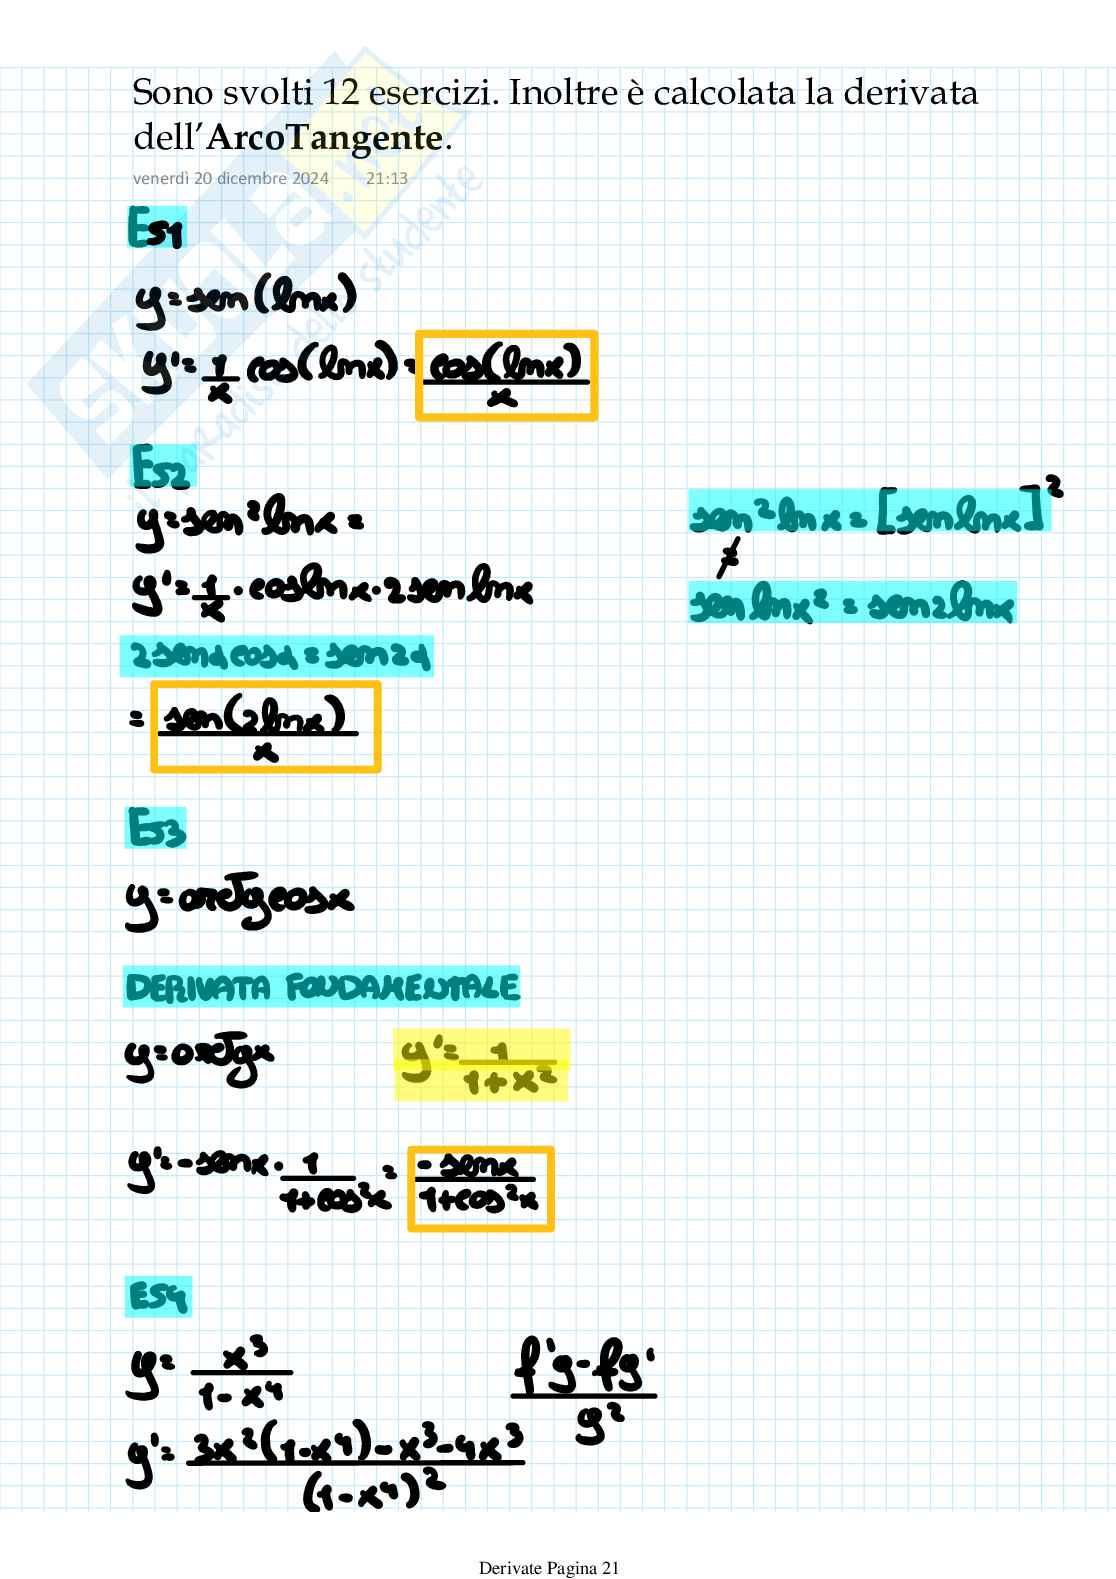 Sono svolti 12 esercizi. Inoltre è calcolata la derivata
dell'ArcoTangente.
venerdì 20 dicembre 2024 21:13
SKUOLA.net
il paradiso dello studente
Es1
y = sen(lnx)
y' = 1/x cos(lnx) = cos(lnx)/x
Es2
y = sen²lnx =
sen²lnx = [senlnx]²
≠
y' = 1/x · coslnx · 2senlnx
senlnx² = sen2lnx
2senαcosα = sen2α
= sen(2lnx)/x
Es3
y = arcTgcosx
DERIVATA FONDAMENTALE
y = arcTgx y' = 1/(1+x²)
y' = -senx · 1/(1+cos²x) = -senx/(1+cos²x)
ES4
y = x³/(1-x⁴) (f'g-fg')/g²
y' = (3x²(1-x⁴)-x³-4x³)/(1-x⁴)²
Derivate Pagina 21